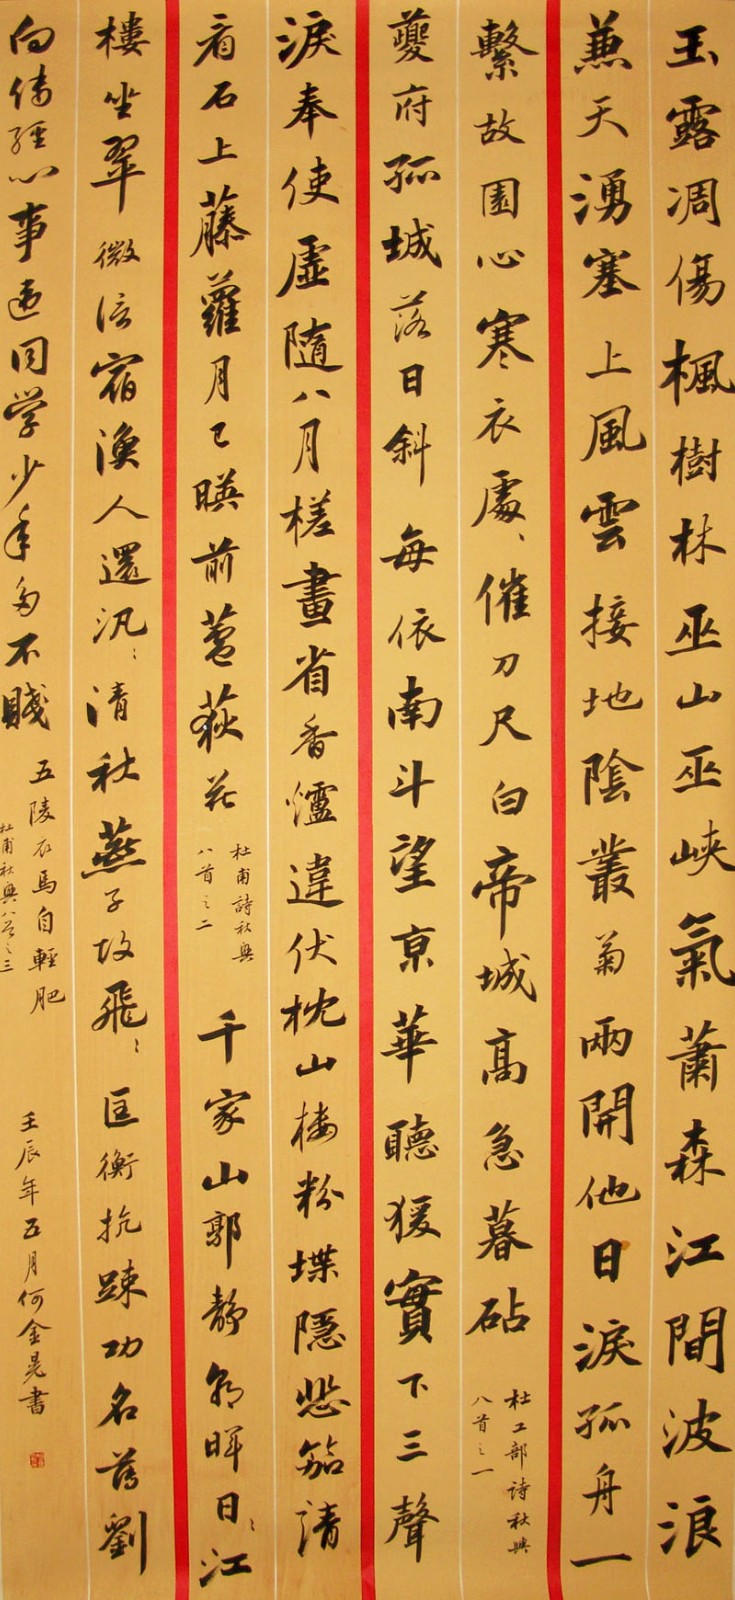 玉露凋傷楓樹林巫山巫峽氣蕭森江間波浪
兼天湧塞上風雲接地陰叢菊兩開他日淚孤舟一
繫故園心寒衣處、催刀尺白帝城高急暮砧
杜工部詩秋興
八首之一
夔府孤城落日斜每依南斗望京華聽猨實下三聲
淚奉使虛隨八月槎畫省香爐違伏枕山楼粉堞隱悲笳請
看石上藤蘿月已暎前蘆荻花
杜甫詩秋興
八首之二
千家山郭靜朝暉日、江
樓坐翠微信宿漁人還汎、清秋燕子故飛、匡衡抗疎功名薄劉
向傳經心事違同学少年多不賤
五陵衣馬自輕肥
杜甫秋興八首之三
壬辰年五月何金晃書